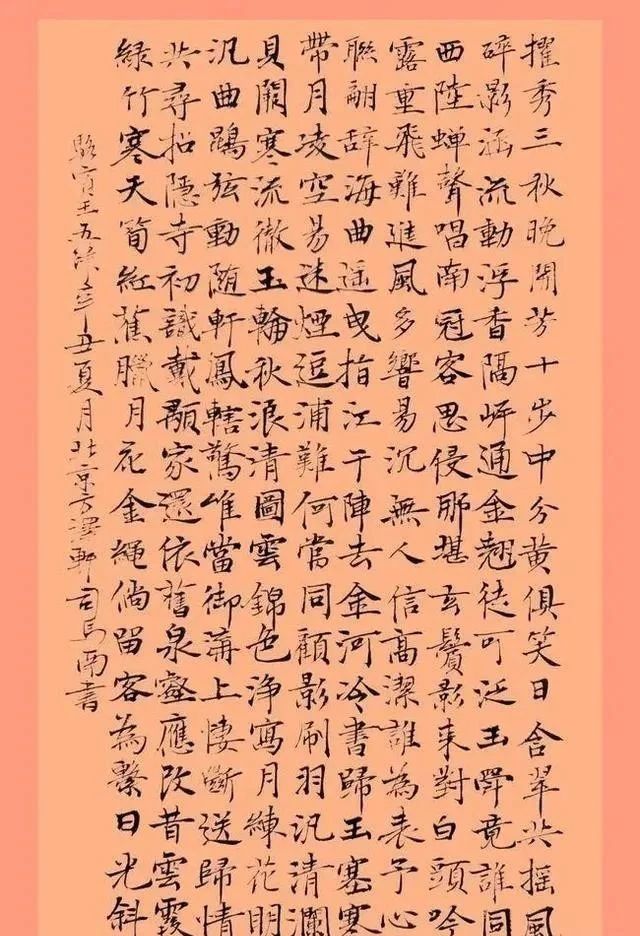 擢秀三秋晚開芳十步中分黃俱笑日含翠共搖風
碎影涵流動浮香隔岸通金翹徒可泛玉斝竟誰同
西陸蟬聲唱南冠客思侵那堪玄鬢影來對白頭吟
露重飛難進風多響易沉無人信高潔誰為表予心
聯翩辭海曲遙曳指江干陣去金河冷書歸玉塞寒
帶月凌空易迷煙逗浦難何當同顧影刷羽汎清瀾
貝闕寒流徹玉輪秋浪清圖雲錦色淨寫月練花明
汎曲鵾弦動隨軒鳳轄驚唯當御溝上悽斷送歸情
共尋招隱寺初識戴顒家還依舊泉壑應改昔雲霞
綠竹寒天筍紅蕉臘月花金繩倘留客為繫日光斜
駱賓王五律辛丑夏月北京方澤軒司馬書